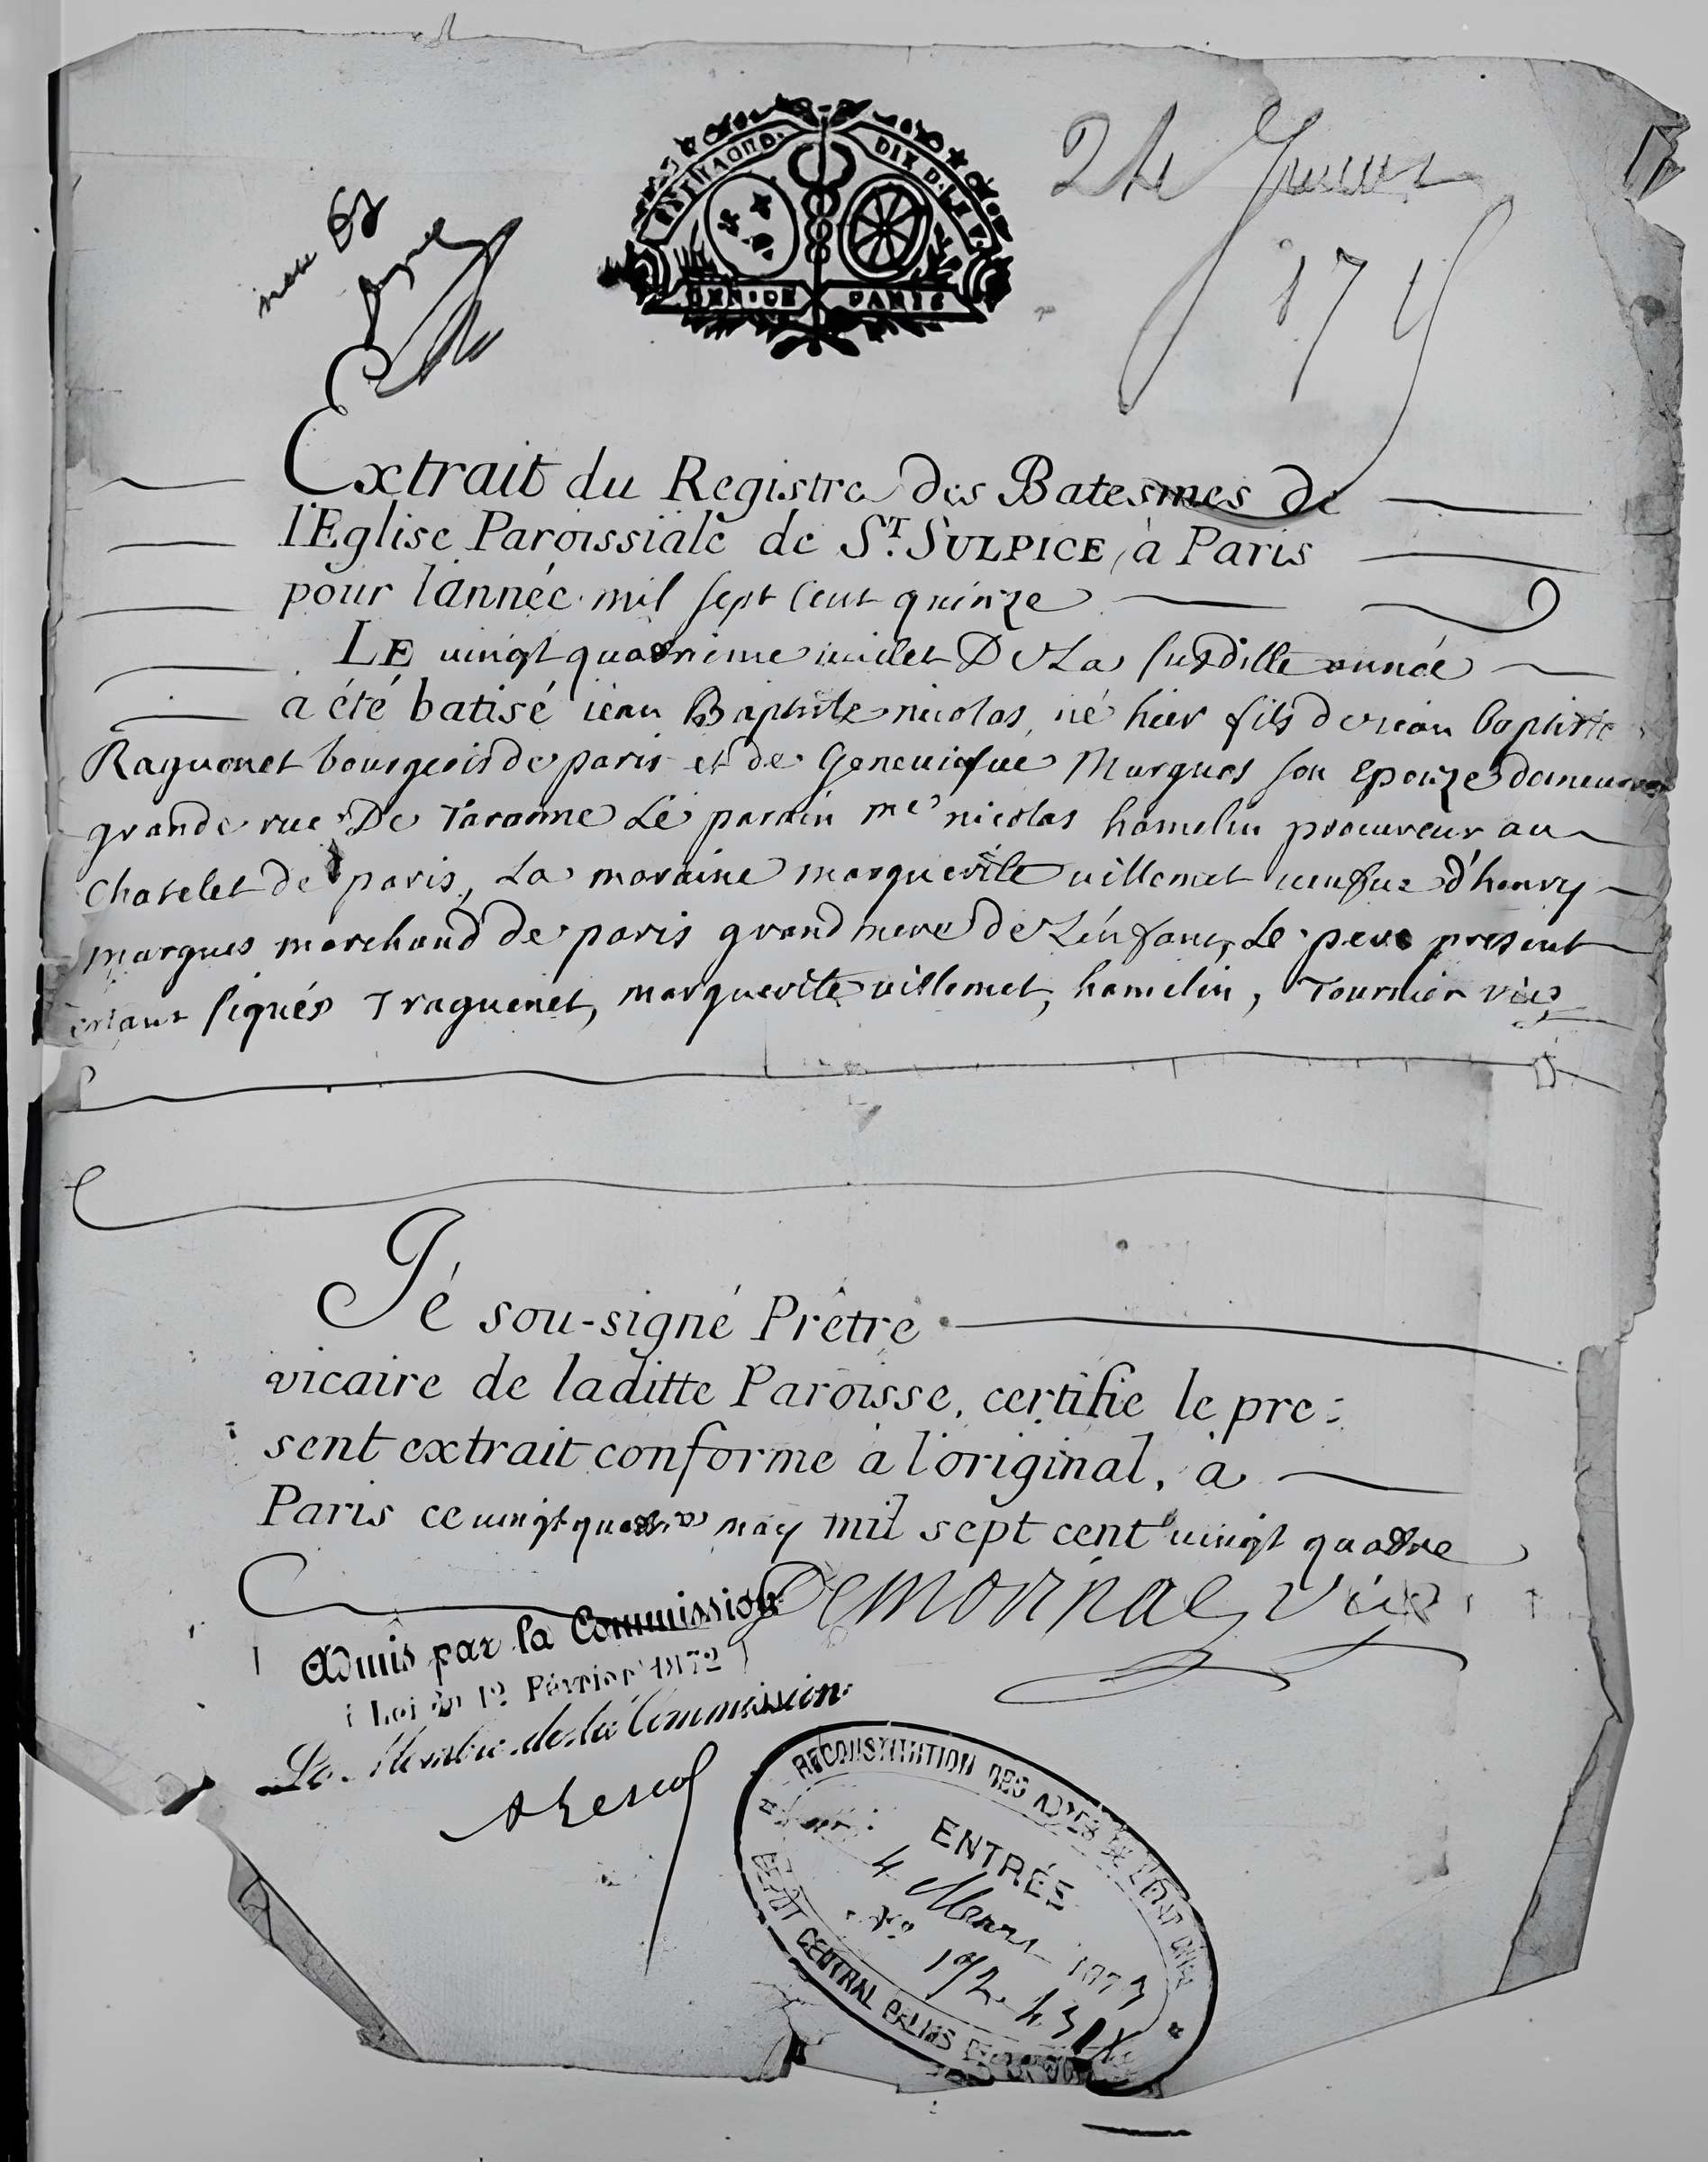 24
17
Extrait du Registre des Batesmes de
l'Eglise Paroissiale de St. SULPICE, à Paris
pour l'année mil sept cent quinze
LE vingt quatrieme juillet De La susditte année
a été batisé iean Baptiste nicolas, né hier fils de iean baptiste
Raguenet bourgeois de paris et de Geneuiefue Margues son Epouze
grande rue De Taranne Le parain me nicolas hamelin procureur au
Chatelet de paris, La maraine marguerite uillemet ueufue d'henry
margues marchand de paris grand mere de L'enfant, Le pere present
signés Traguenet, marguerite uillemet, hamelin, Tournier vic
Je sou-signé Prêtre
vicaire de laditte Paroisse, certifie le pre=
sent extrait conforme à l'original, à
Paris ce uingt quatre may mil sept cent uingt quatre
vic
Admis par la Commission
Loi du 12 Février 1872
Le Membre de la Commission
RECONSTITUTION DES ACTES DE L'ETAT CIVIL
ENTRÉE
4 Mars 1873
No
DEPOT CENTRAL